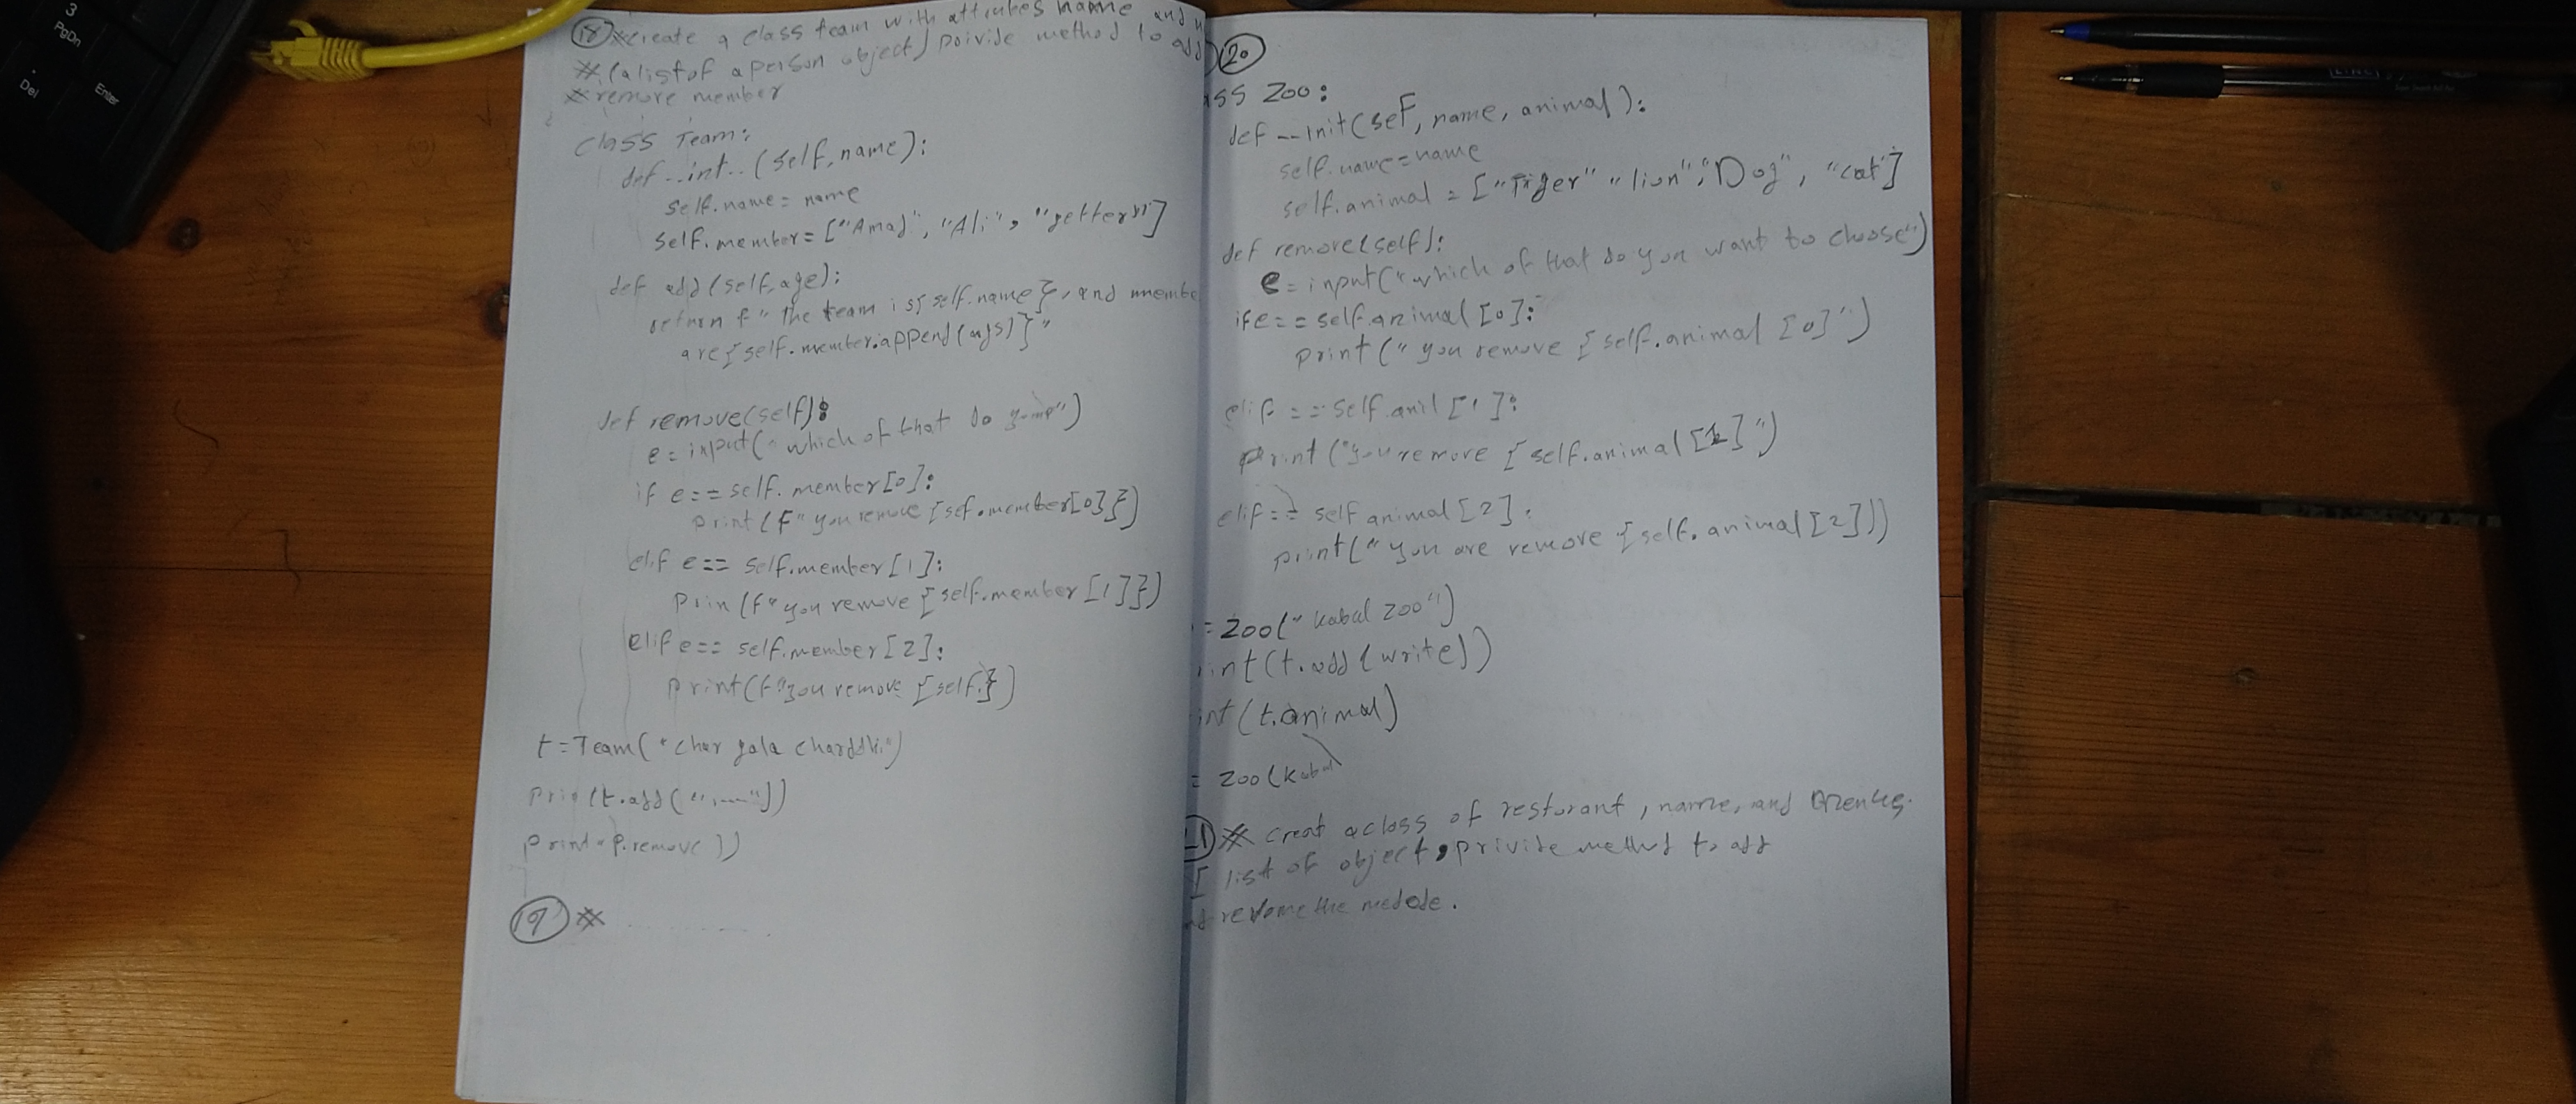 18 * create a class team with attributes name and
* (a list of a person object) poivide method to add
* remove member
class Team:
def __int__(self, name):
self.name = name
self.member = ["Amad", "Ali",
def add(self, age):
return f" the team is {self.name}, and membe
are {self.member.append(
def remove(self):
e = input(" which of that do
if e == self.member[0]:
print(f" you remove {sef.member[0]})
elif e == self.member[1]:
prin(f" you remove {self.member[1]})
elif e == self.member[2]:
print(f" you remove {self.})
t = Team("char gala
print(t.add("
p.remove))
19 *
20
ass zoo:
def __init(sef, name, animal):
self.name = name
self.animal = ["Tiger" "lion", "Dog", "cat"]
def remove(self):
e = input("which of that do you want to choose")
if e == self.animal[0]:
print(" you remove {self.animal [0]")
elif == self ani[1]:
print("you remove {self.animal
elif = self animal[2]:
print(" you are remove {self.animal[2]))
= zoo(" kabul zoo")
int(t.add(write))
int(t.animal)
= zoo(kabul
* creat a class of resturant, name, and
list of object, privide method to add
nd